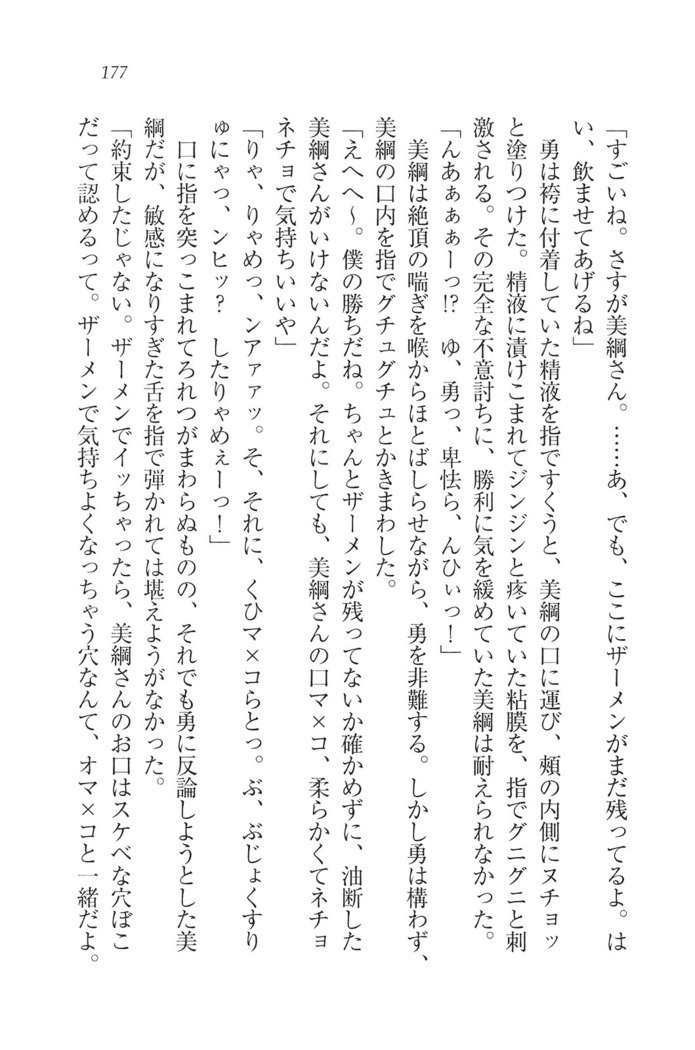 177
「すごいね。さすが美綱さん。……あ、でも、ここにザーメンがまだ残ってるよ。は
い、飲ませてあげるね」
勇は袴に付着していた精液を指ですくうと、美綱の口に運び、頰の内側にヌチョッ
と塗りつけた。精液に漬けこまれてジンジンと疼いていた粘膜を、指でグニグニと刺
激される。その完全な不意討ちに、勝利に気を緩めていた美綱は耐えられなかった。
「んあぁぁぁーっ!? ゆ、勇っ、卑怯ら、んひぃっ！」
美綱は絶頂の喘ぎを喉からほとばしらせながら、勇を非難する。しかし勇は構わず、
美綱の口内を指でグチュグチュとかきまわした。
「えへへ～。僕の勝ちだね。ちゃんとザーメンが残ってないか確かめずに、油断した
美綱さんがいけないんだよ。それにしても、美綱さんの口マ×コ、柔らかくてネチョ
ネチョで気持ちいいや」
「りゃ、りゃめっ、ンアァァッ。そ、それに、くひマ×コらとっ。ぶ、ぶじょくすり
ゅにゃっ、ンヒッ？ したりゃめぇーっ！」
口に指を突っこまれてろれつがまわらぬものの、それでも勇に反論しようとした美
綱だが、敏感になりすぎた舌を指で弾かれては堪えようがなかった。
「約束したじゃない。ザーメンでイッちゃったら、美綱さんのお口はスケベな穴ぼこ
だって認めるって。ザーメンで気持ちよくなっちゃう穴なんて、オマ×コと一緒だよ。